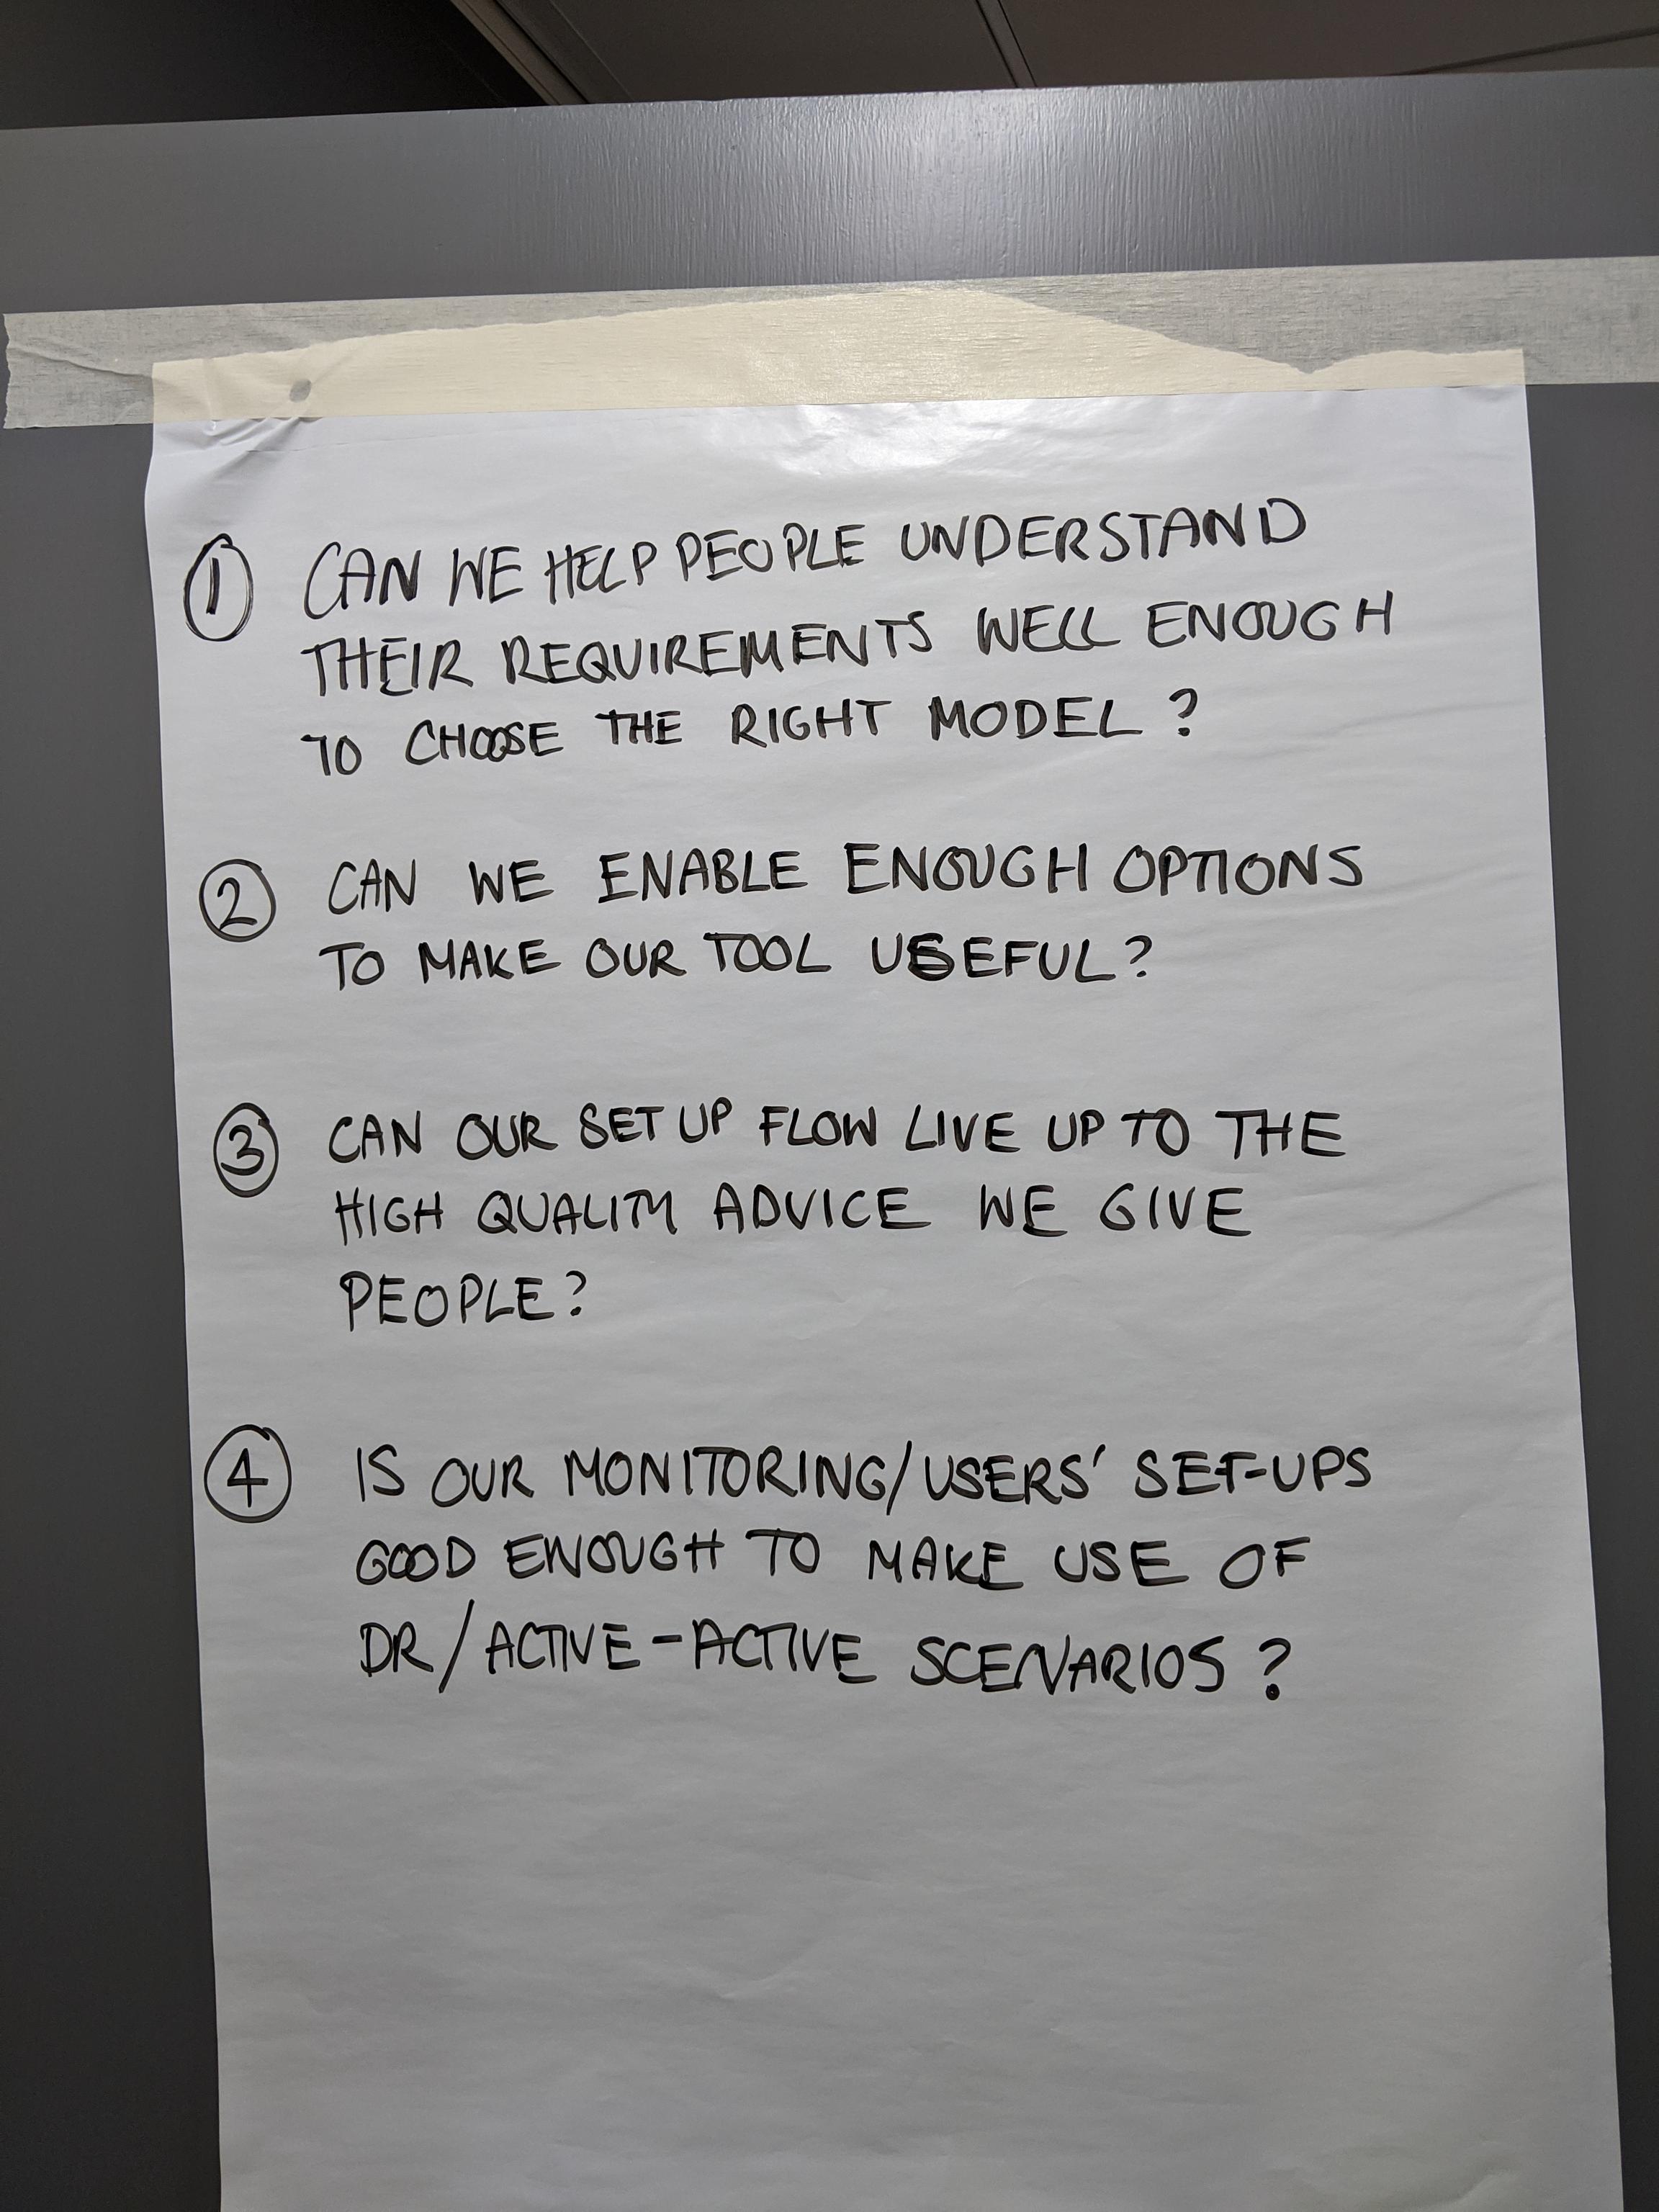 ① CAN WE HELP PEOPLE UNDERSTAND
THEIR REQUIREMENTS WELL ENOUGH
TO CHOOSE THE RIGHT MODEL?
② CAN WE ENABLE ENOUGH OPTIONS
TO MAKE OUR TOOL USEFUL?
③ CAN OUR SET UP FLOW LIVE UP TO THE
HIGH QUALITY ADVICE WE GIVE
PEOPLE?
④ IS OUR MONITORING/USERS' SET-UPS
GOOD ENOUGH TO MAKE USE OF
DR/ACTIVE-ACTIVE SCENARIOS?